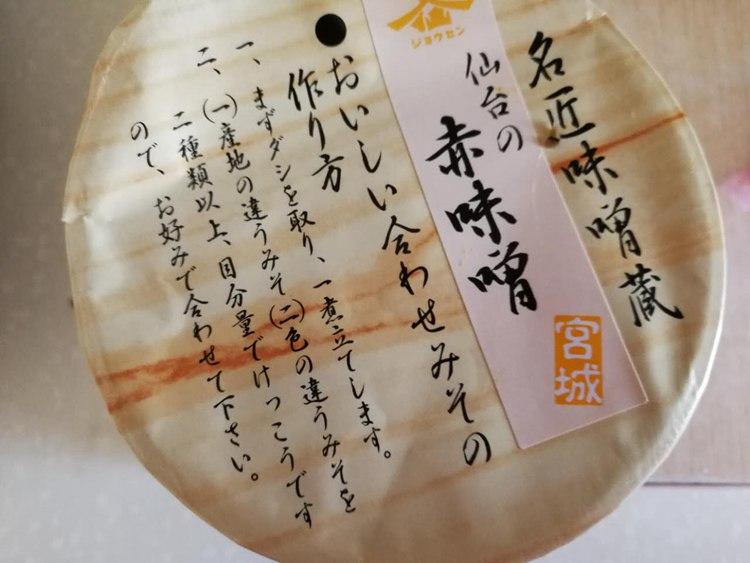 名匠味噌蔵
ジョウセン
仙台の
赤味噌
宮城
おいしい合わせみその
作り方
一、まずダシを取り、一煮立てします。
二、(一)産地の違うみそ(二)色の違うみそを
二種類以上、目分量でけっこうです
ので、お好みで合わせて下さい。